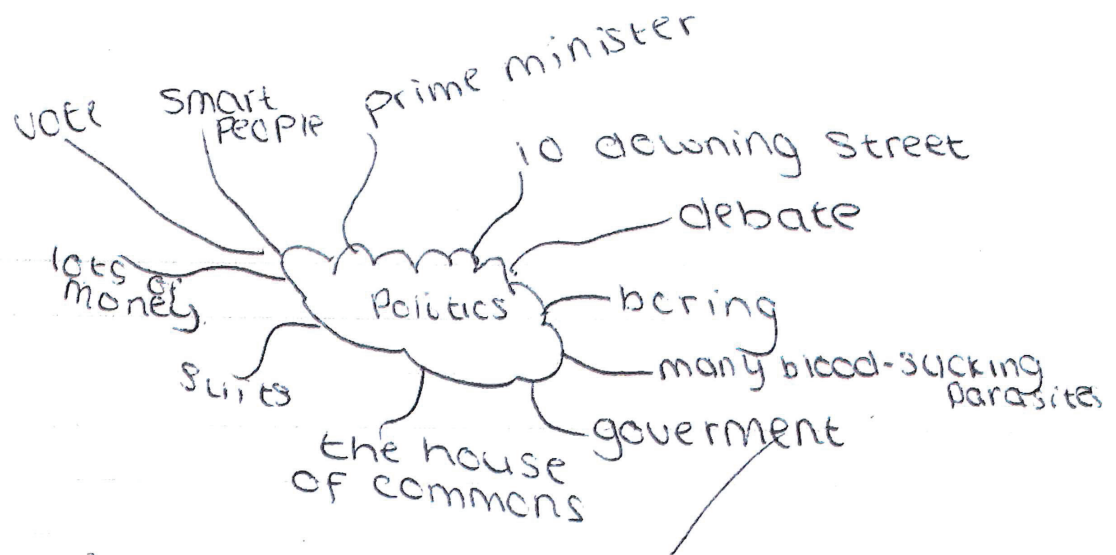 vote
smart
people
prime minister
10 downing street
debate
lots of
money
Politics
boring
suits
many blood-sucking
parasites
goverment
the house
of commons